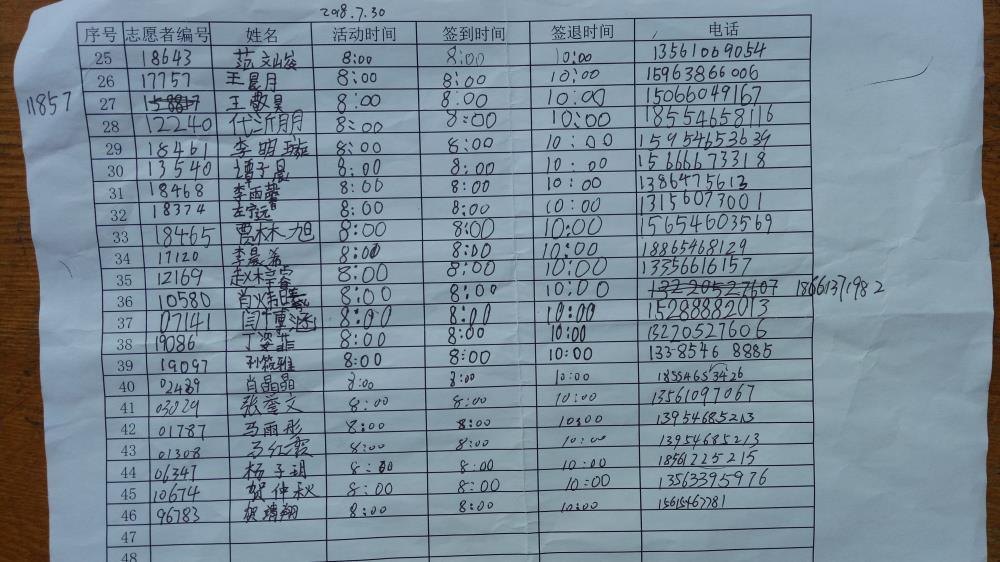 2018.7.30
序号 志愿者编号 姓名 活动时间 签到时间 签退时间 电话
25 18643 范文峻 8:00 8:00 10:00 13561069054
26 17757 王昱月 8:00 8:00 10:00 15963866006
11857 27 王敬昊 8:00 8:00 10:00 15066049167
28 12240 代沂朋 8:00 8:00 10:00 18554658116
29 18461 李明璇 8:00 8:00 10:00 15954653639
30 13540 谭子晨 8:00 8:00 10:00 15666673318
31 18468 李雨馨 8:00 8:00 10:00 1386475613
32 18374 左宁远 8:00 8:00 10:00 13156073001
33 18465 贾林旭 8:00 8:00 10:00 15654603569
34 17120 李晨希 8:00 8:00 10:00 18865468129
35 12169 赵梓 8:00 8:00 10:00 13356616157
36 10580 肖炜曦 8:00 8:00 10:00 13220527607 18661371982
37 07141 闫重涵 8:00 8:00 10:00 15288882013
38 19086 丁姿菲 8:00 8:00 10:00 13270527606
39 19097 孙筱雅 8:00 8:00 10:00 1338546 8885
40 02439 肖晶晶 8:00 8:00 10:00 18554653426
41 03029 张誉文 8:00 8:00 10:00 13561097067
42 01787 马雨彤 8:00 8:00 10:00 13954685213
43 01308 马红霞 8:00 8:00 10:00 13954685213
44 06347 杨子玥 8:00 8:00 10:00 18561225215
45 10674 贺仲秋 8:00 8:00 10:00 13563395976
46 96783 8:00 8:00 10:00 15615467781
47
48